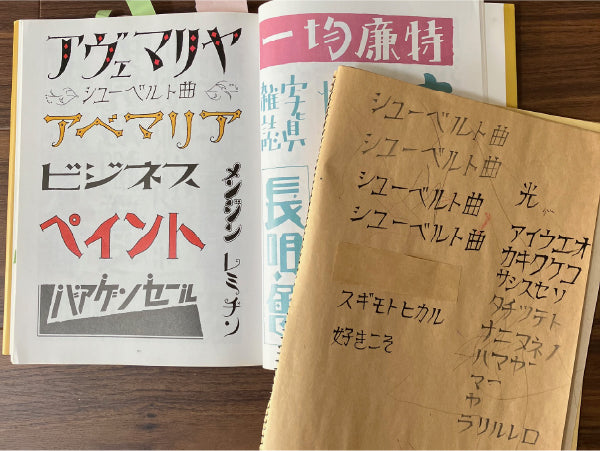 アヴェマリヤ
シューベルト曲
アベマリア
ビジネス
ペイント
バアゲンセール
レミチン
特廉均一
雑誌
シューベルト曲
シューベルト曲
シューベルト曲
シューベルト曲
光
アイウエオ
カキクケコ
サシスセソ
タチツテト
ナニヌネノ
マー
ヤ
ラリルレロ
スギモトヒカル
好きこそ